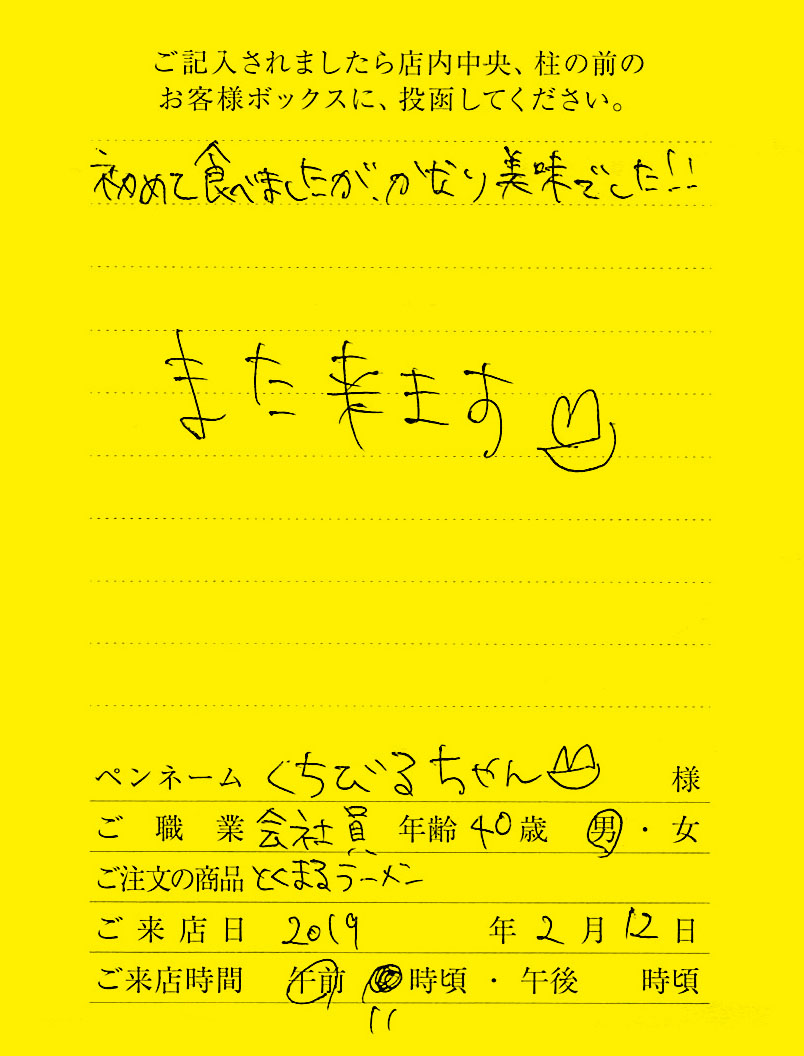 ご記入されましたら店内中央、柱の前の
お客様ボックスに、投函してください。
初めて食べましたが、かなり美味でした!!
また来ます
ペンネーム くちびるちゃん 様
ご職業 会社員 年齢 40歳 男・女
ご注文の商品 とくまるラーメン
ご来店日 2019年2月12日
ご来店時間 午前 時頃・午後 時頃
11